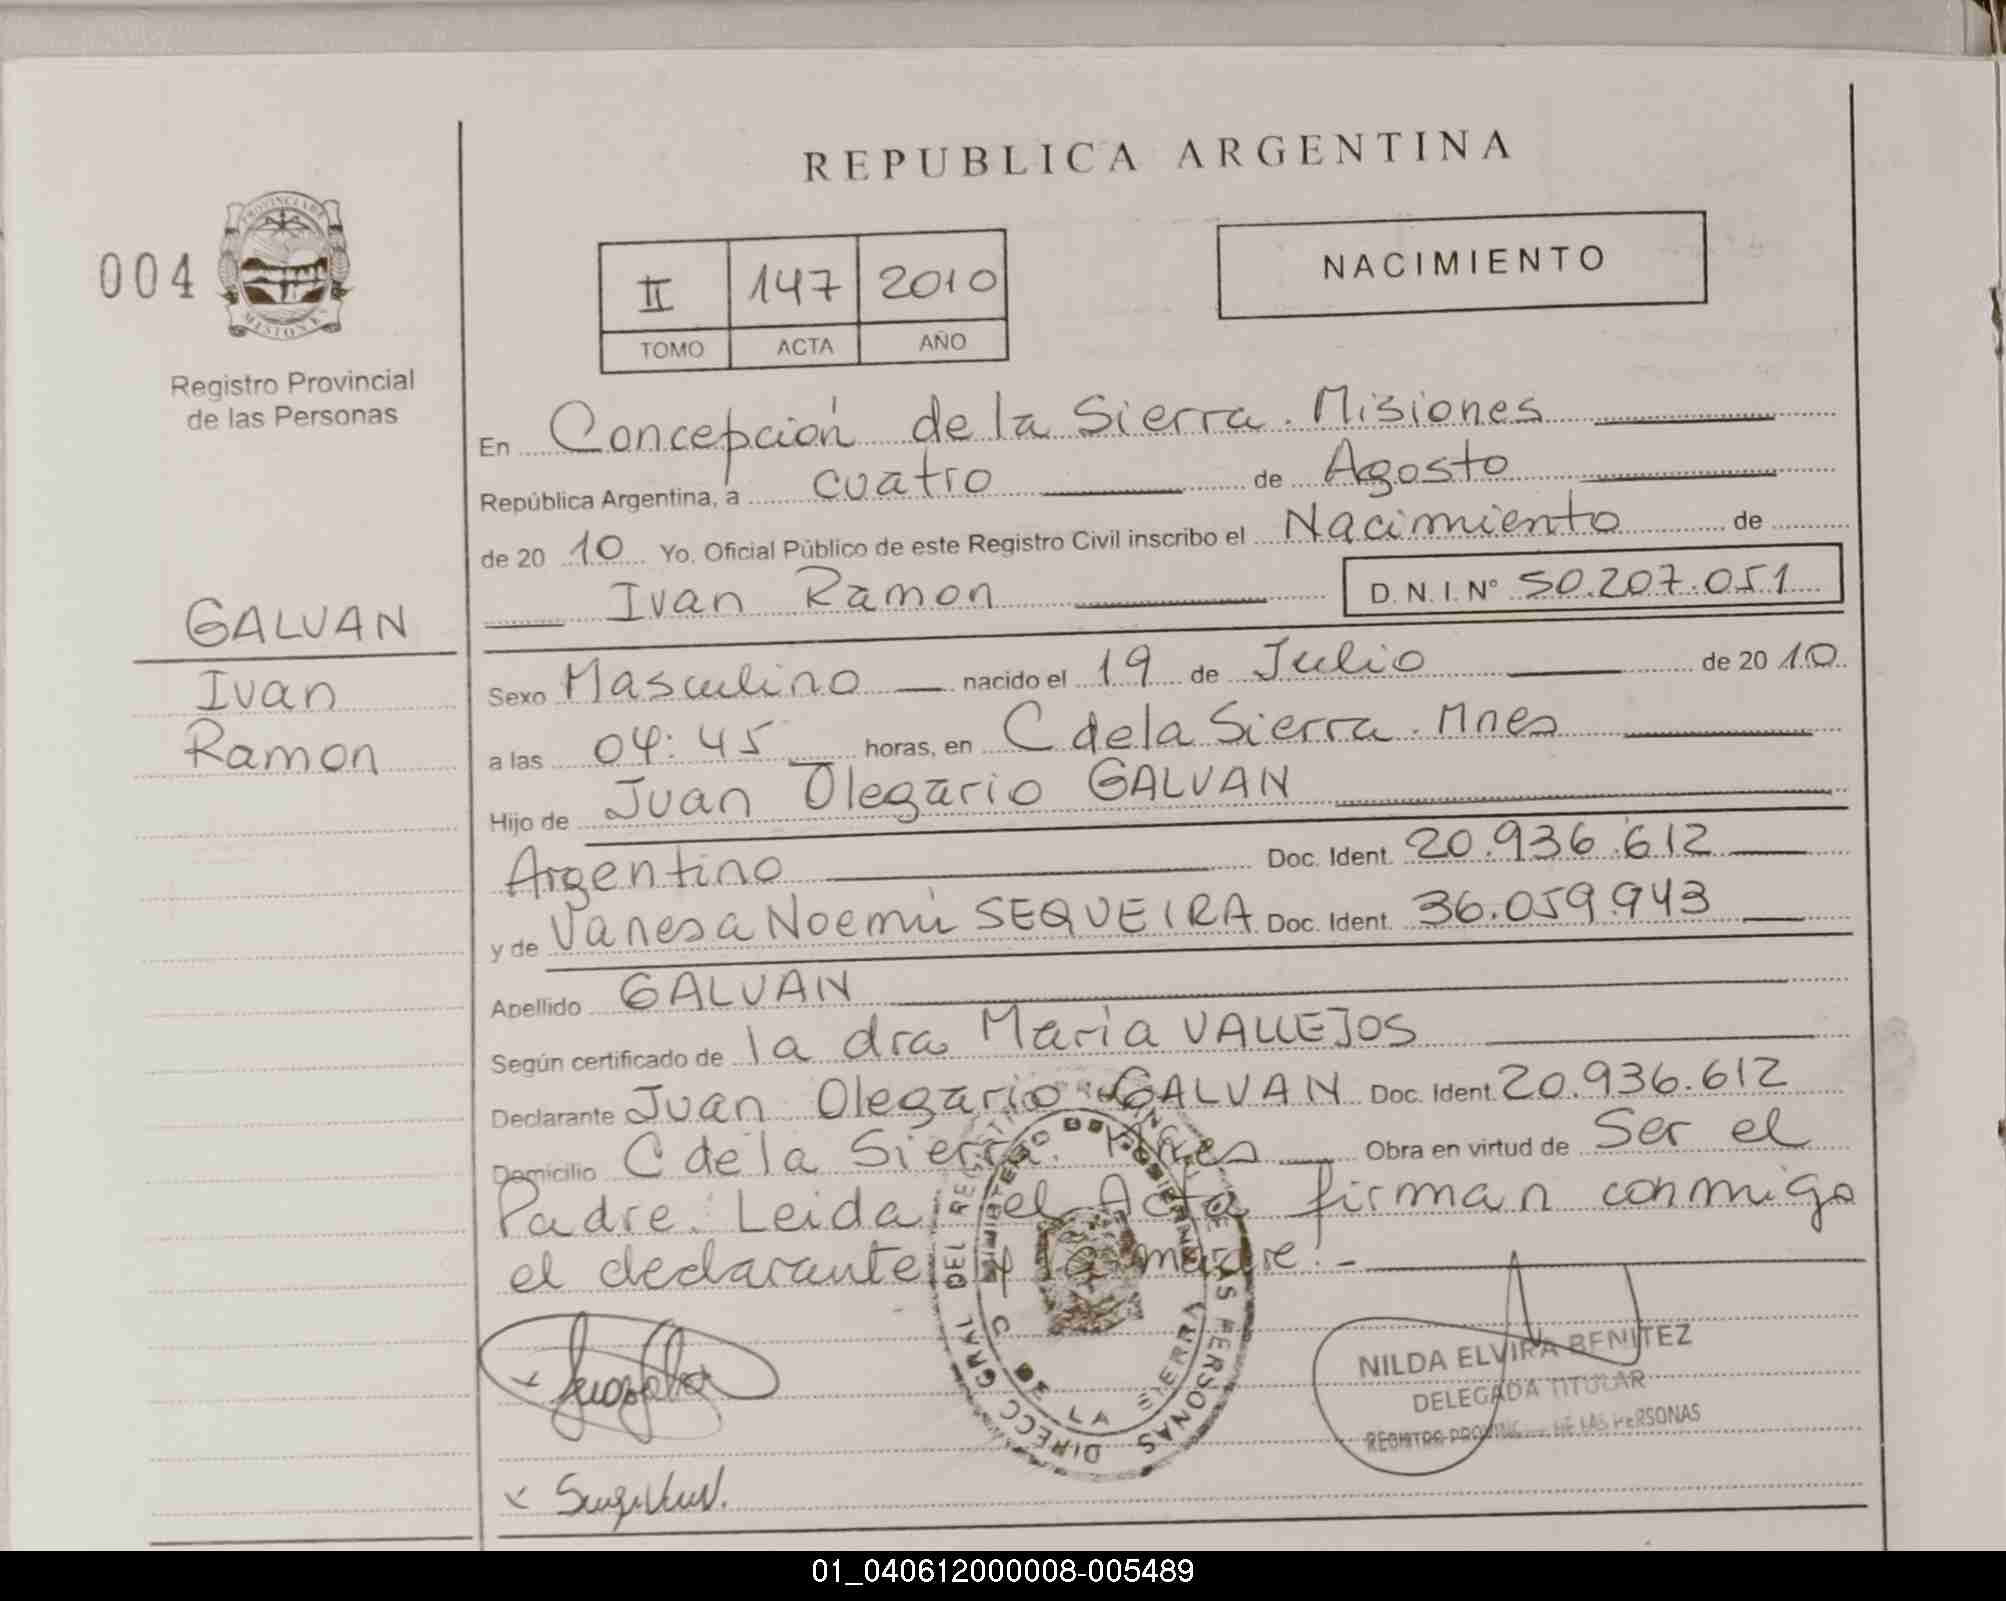 REPUBLICA ARGENTINA
004
PROVINCIA DE
MISIONES
Registro Provincial
de las Personas
II 147 2010
TOMO ACTA AÑO
NACIMIENTO
En Concepción de la Sierra. Misiones
República Argentina, a cuatro de Agosto
de 20 10 Yo, Oficial Público de este Registro Civil inscribo el Nacimiento de
Ivan Ramon D.N.I.Nº 50.207.051
GALVAN
Ivan
Ramon
Sexo Masculino nacido el 19 de Julio de 20 10
a las 04:45 horas, en C de la Sierra. Mnes
Hijo de Juan Olegario GALVAN
Argentino Doc. Ident. 20.936.612
y de Vanesa Noemí SEQUEIRA Doc. Ident. 36.059.943
Apellido GALVAN
Según certificado de la dra Maria VALLEJOS
Declarante Juan Olegario GALVAN Doc. Ident. 20.936.612
Domicilio C de la Sierra. Mnes Obra en virtud de Ser el
Padre. Leida el Acta firman conmigo
el declarante y la madre.-
DIRECC GRAL DEL REGISTRO PROVINCIAL DE LAS PERSONAS
MINISTERIO DE GOBIERNO
C DE LA SIERRA
NILDA ELVIRA BENITEZ
DELEGADA TITULAR
REGISTRO PROVINC. DE LAS PERSONAS
01_040612000008-005489